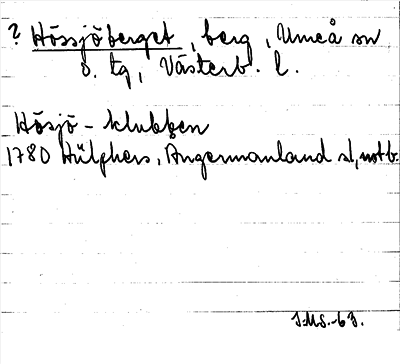 ? Hössjöberget, berg, Umeå sn
s. tg, Västerb. l.
Hösjö-klubben
1780 Hülphers, Ångermanland s1, not b.
I.M.S.-63.